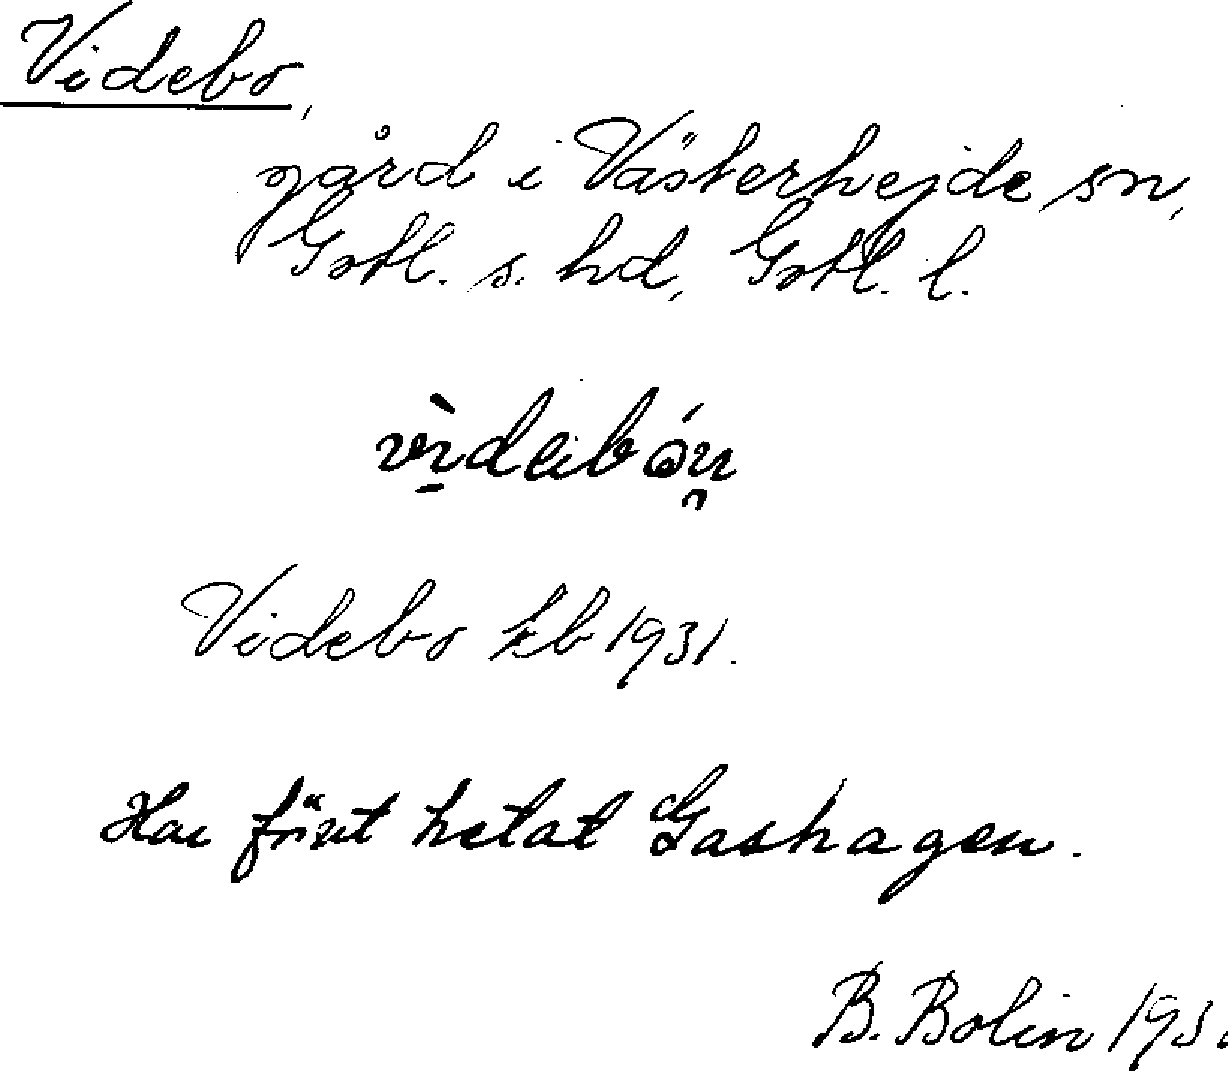 Videbo,
gård i Västerhejde sn,
Gotl. s. hd, Gotl. l.
Videbo kb 1931.
Har förut hetat Gashagen.
B. Bolin 193